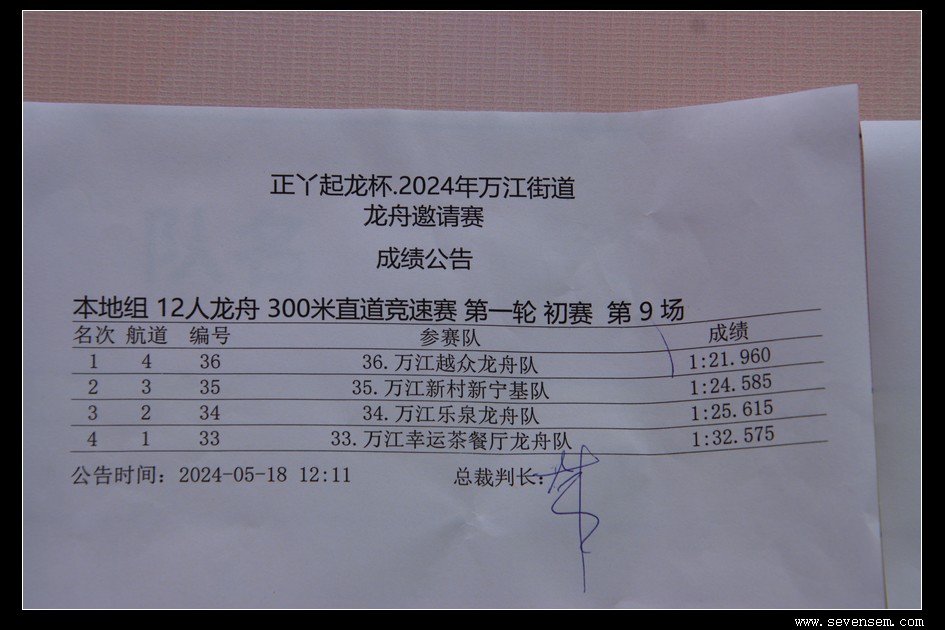 正丫起龙杯.2024年万江街道
龙舟邀请赛
成绩公告
本地组 12人龙舟 300米直道竞速赛 第一轮 初赛 第 9 场
名次 航道 编号 参赛队 成绩
1 4 36 36.万江越众龙舟队 1:21.960
2 3 35 35.万江新村新宁基队 1:24.585
3 2 34 34.万江乐泉龙舟队 1:25.615
4 1 33 33.万江幸运茶餐厅龙舟队 1:32.575
公告时间: 2024-05-18 12:11 总裁判长:
www.sevensem.com